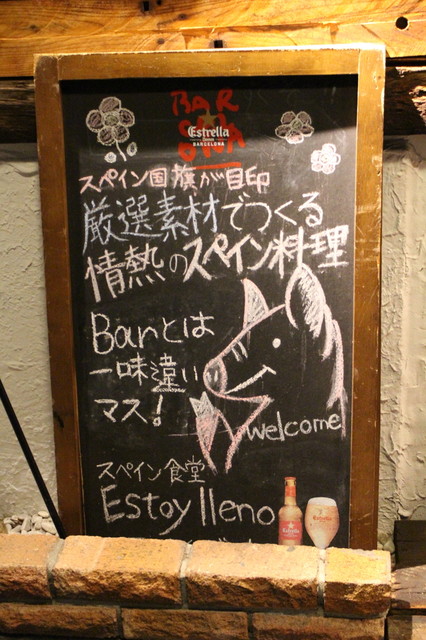 BAR
Estrella
Damm
BARCELONA
スペイン国旗が目印
厳選素材でつくる
情熱のスペイン料理
Barとは
一味違い
マス!
welcome
スペイン食堂
Estoy lleno